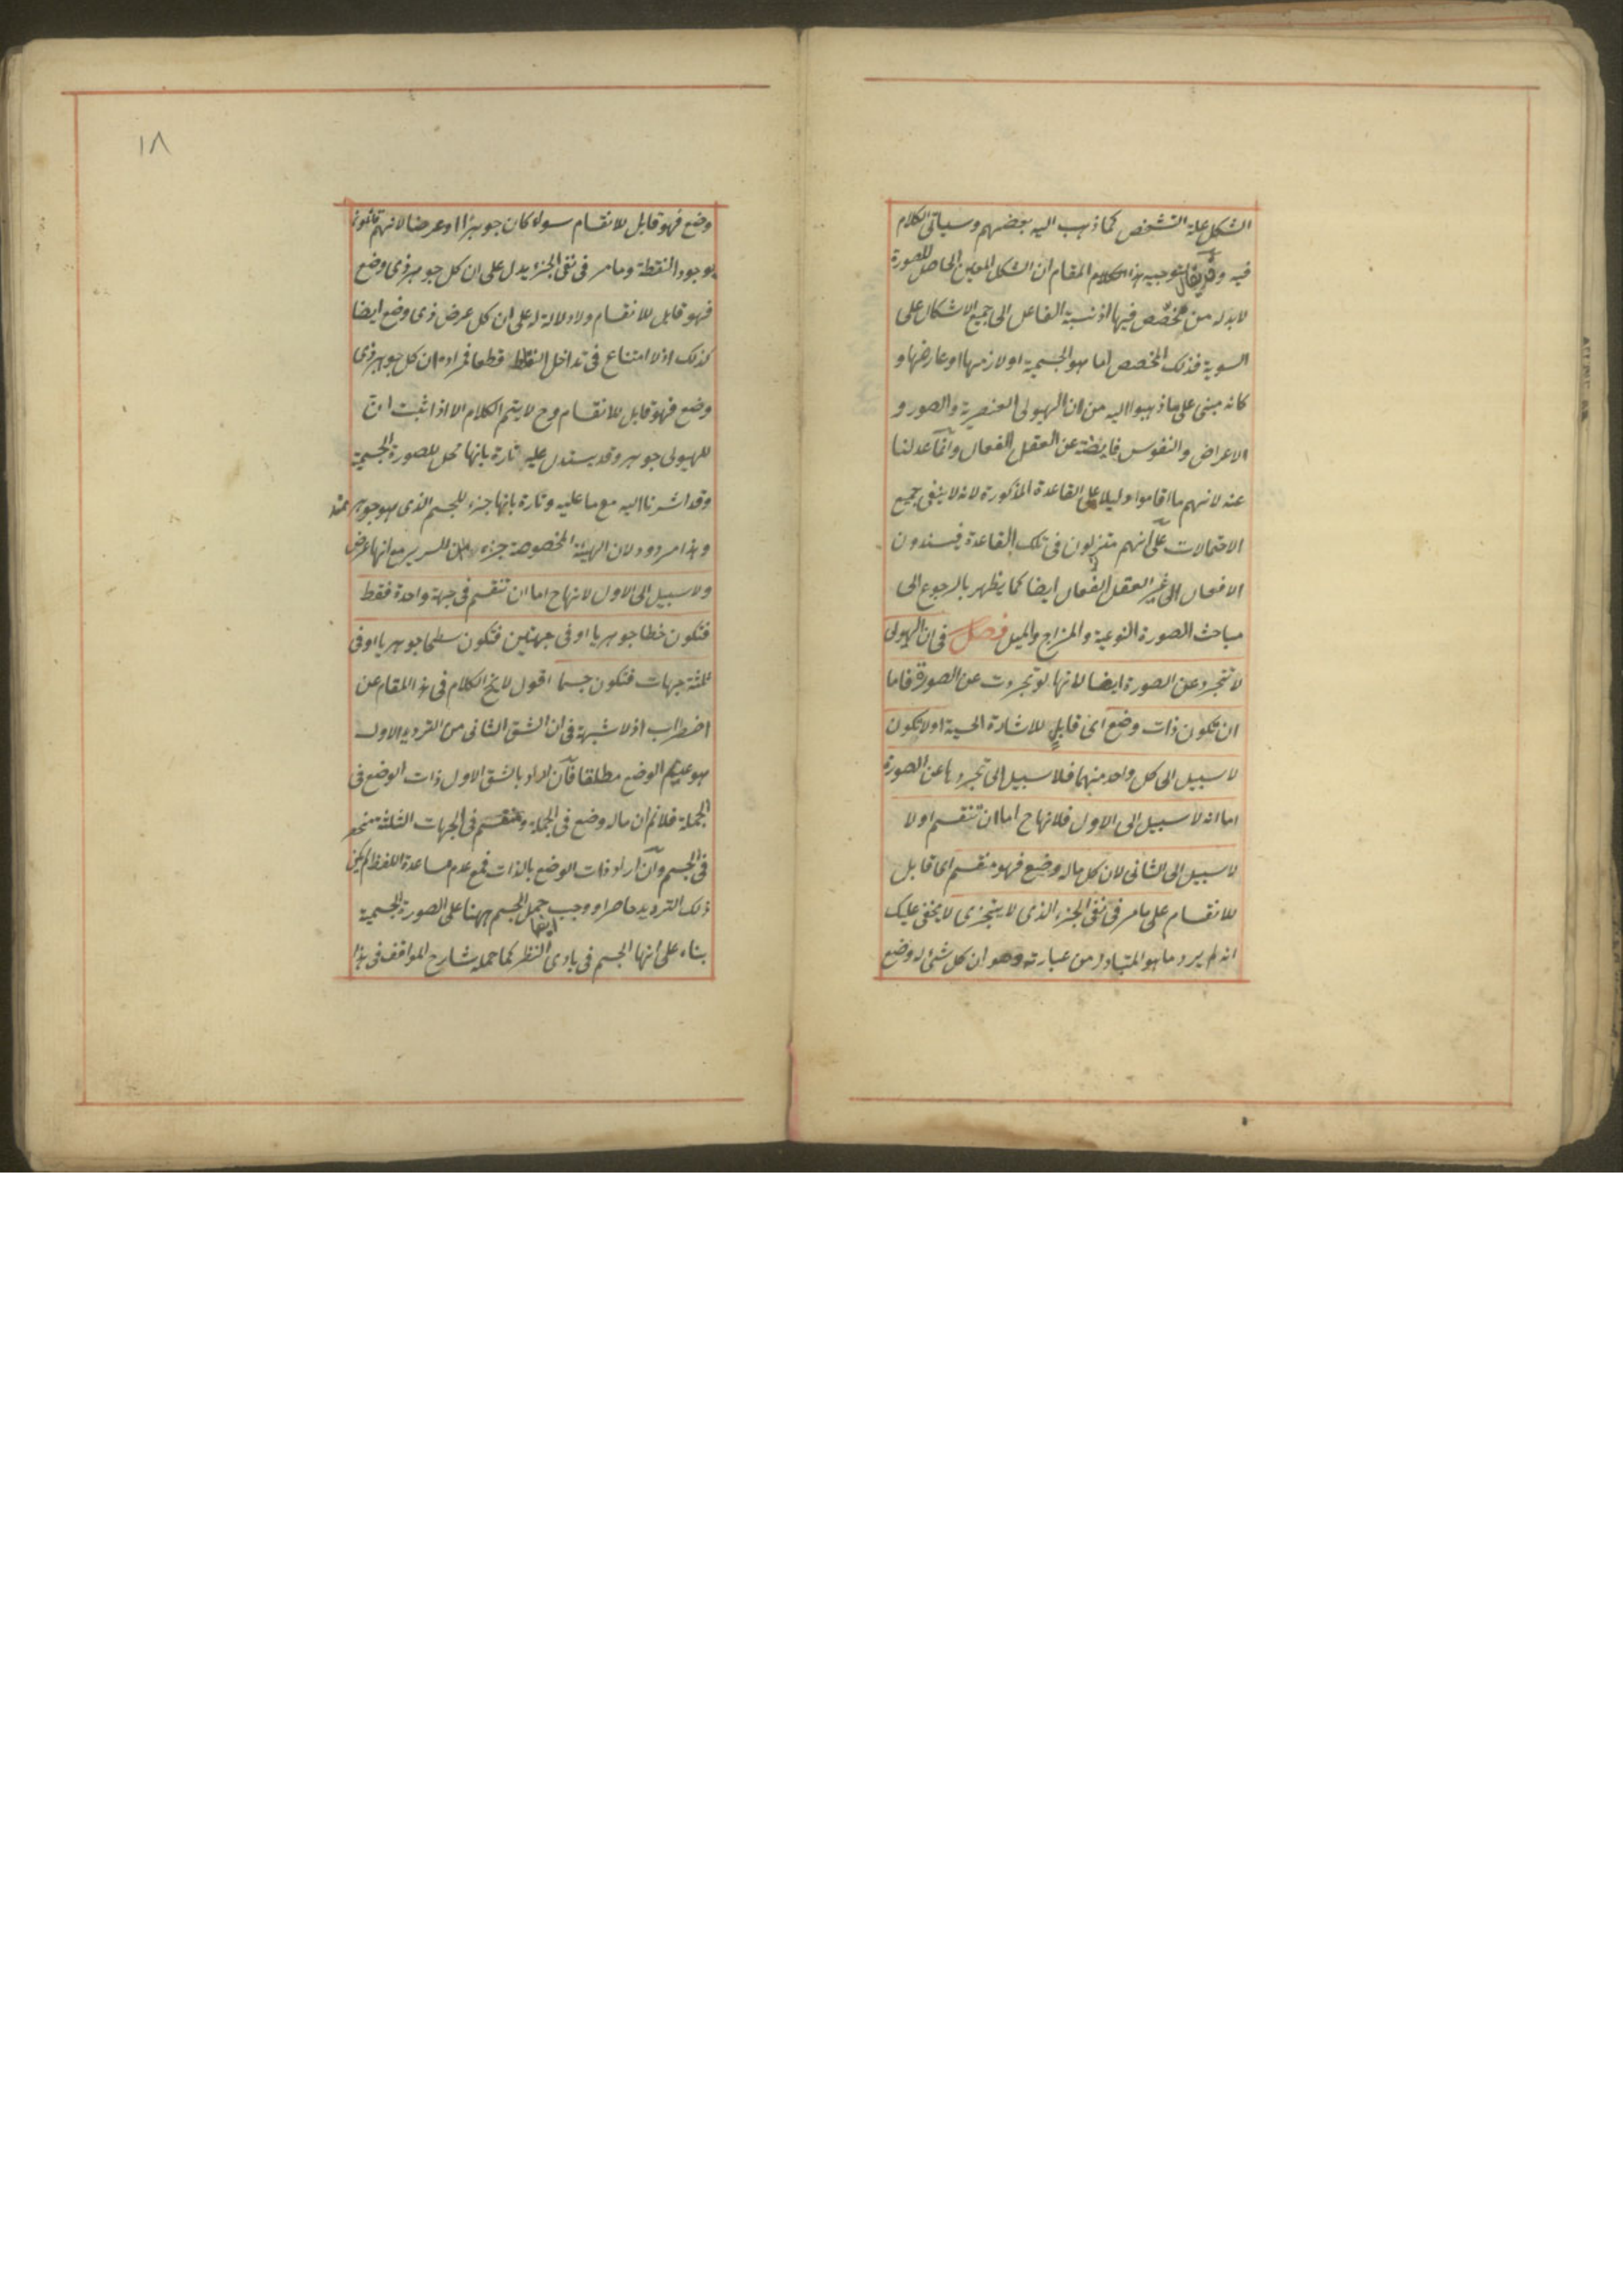 الشكل علة التشخص كما ذهب اليه بعضهم وسياتى الكلام
فيه وقد يقال لتوجيه هذا الكلام المقام ان الشكل المعين الحاصل للصورة
لا بد له من مخصص فيها اذ نسبة الفاعل الى جميع الاشكال على
السوية فذلك المخصص اما هو الجسمية او لازمها او عارضها و
كانه مبنى على ما ذهبوا اليه من ان الهيولى العنصرية والصور و
الاعراض والنفوس فايضة عن العقل الفعال وانما عدلنا
عنه لانهم ما اقاموا دليلا على القاعدة المذكورة لانه لا ينفى جميع
الاحتمالات على انهم متزلزلون فى تلك القاعدة فيسندون
الافعال الى غير العقل الفعال ايضا كما يظهر بالرجوع الى
مباحث الصورة النوعية والمزاج والميل فصل فى ان الهيولى
لا تتجرد عن الصورة ايضا لانها لو تجردت عن الصورة فاما
ان تكون ذات وضع اى قابل للاشارة الحسية او لا تكون
لا سبيل الى كل واحد منهما فلا سبيل الى تجردها عن الصورة
اما انه لا سبيل الى الاول فلانها ح اما ان تنقسم او لا
لا سبيل الى الثانى لان كل ما له وضع فهو منقسم اى قابل
للانقسام على ما مر فى نفى الجزء الذى لا يتجزى لا يخفى عليك
انه لم يرد ما هو المتبادر من عبارته وهو ان كل شئ له وضع
١٨
وضع فهو قابل للانقسام سواء كان جوهرا او عرضا لانهم قائلون
بوجود النقطة وما مر فى نفى الجزء يدل على ان كل جوهر ذى وضع
فهو قابل للانقسام ولا دلالة له على ان كل عرض ذى وضع ايضا
كذلك اذ لا امتناع فى تداخل النقط قطعا فمراده ان كل جوهر ذى
وضع فهو قابل للانقسام وح لا يتم الكلام الا اذا ثبت ان
للهيولى جوهر وقد يستدل عليه تارة بانها محل للصورة الجسمية
وقد اشرنا اليه مع ما عليه وتارة بانها جزء للجسم الذى هو جوهر
وهذا مردود لان الهيئة المخصوصة جزء للسرير مع انها عرض
ولا سبيل الى الاول لانها ح اما ان تنقسم فى جهة واحدة فقط
فتكون خطا جوهريا او فى جهتين فتكون سطحا جوهريا او فى
ثلثة جهات فتكون جسما اقول لا يخ الكلام فى هذا المقام عن
اضطراب اذ لا شبهة فى ان الشق الثانى من الترديد الاول
هو عديم الوضع مطلقا فان اراد بالشق الاول ذات الوضع فى
الجملة فلا نم ان ما له وضع فى الجملة ومنقسم فى الجهات الثلثة منحصر
فى الجسم وان اراد ذات الوضع بالذات فمع عدم مساعدة اللفظ لم يكن
ذلك الترديد حاصرا ووجب حمل الجسم ههنا على الصورة الجسمية
بناء على انها الجسم فى بادى النظر ايضا كما حمله شارح المواقف فى هذا